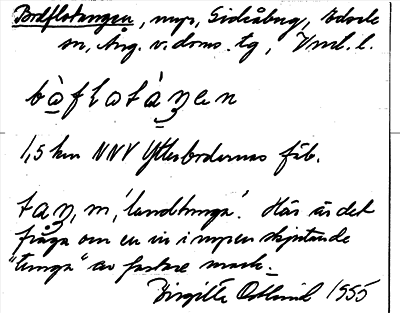 Bodflotangen, myr, Gideåberg,
sn, Ång. v. doms. tg,
bòflotàŋen
1,5 km NNV Ytterbodarnas fäb.
taŋ, m, 'landtunga'. Här är det
fråga om en in i myren skjutande
"tunga" av fastare mark.
Birgitta 1955